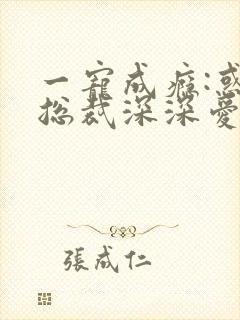 一寵成癮:惑
總裁深深愛
張成仁